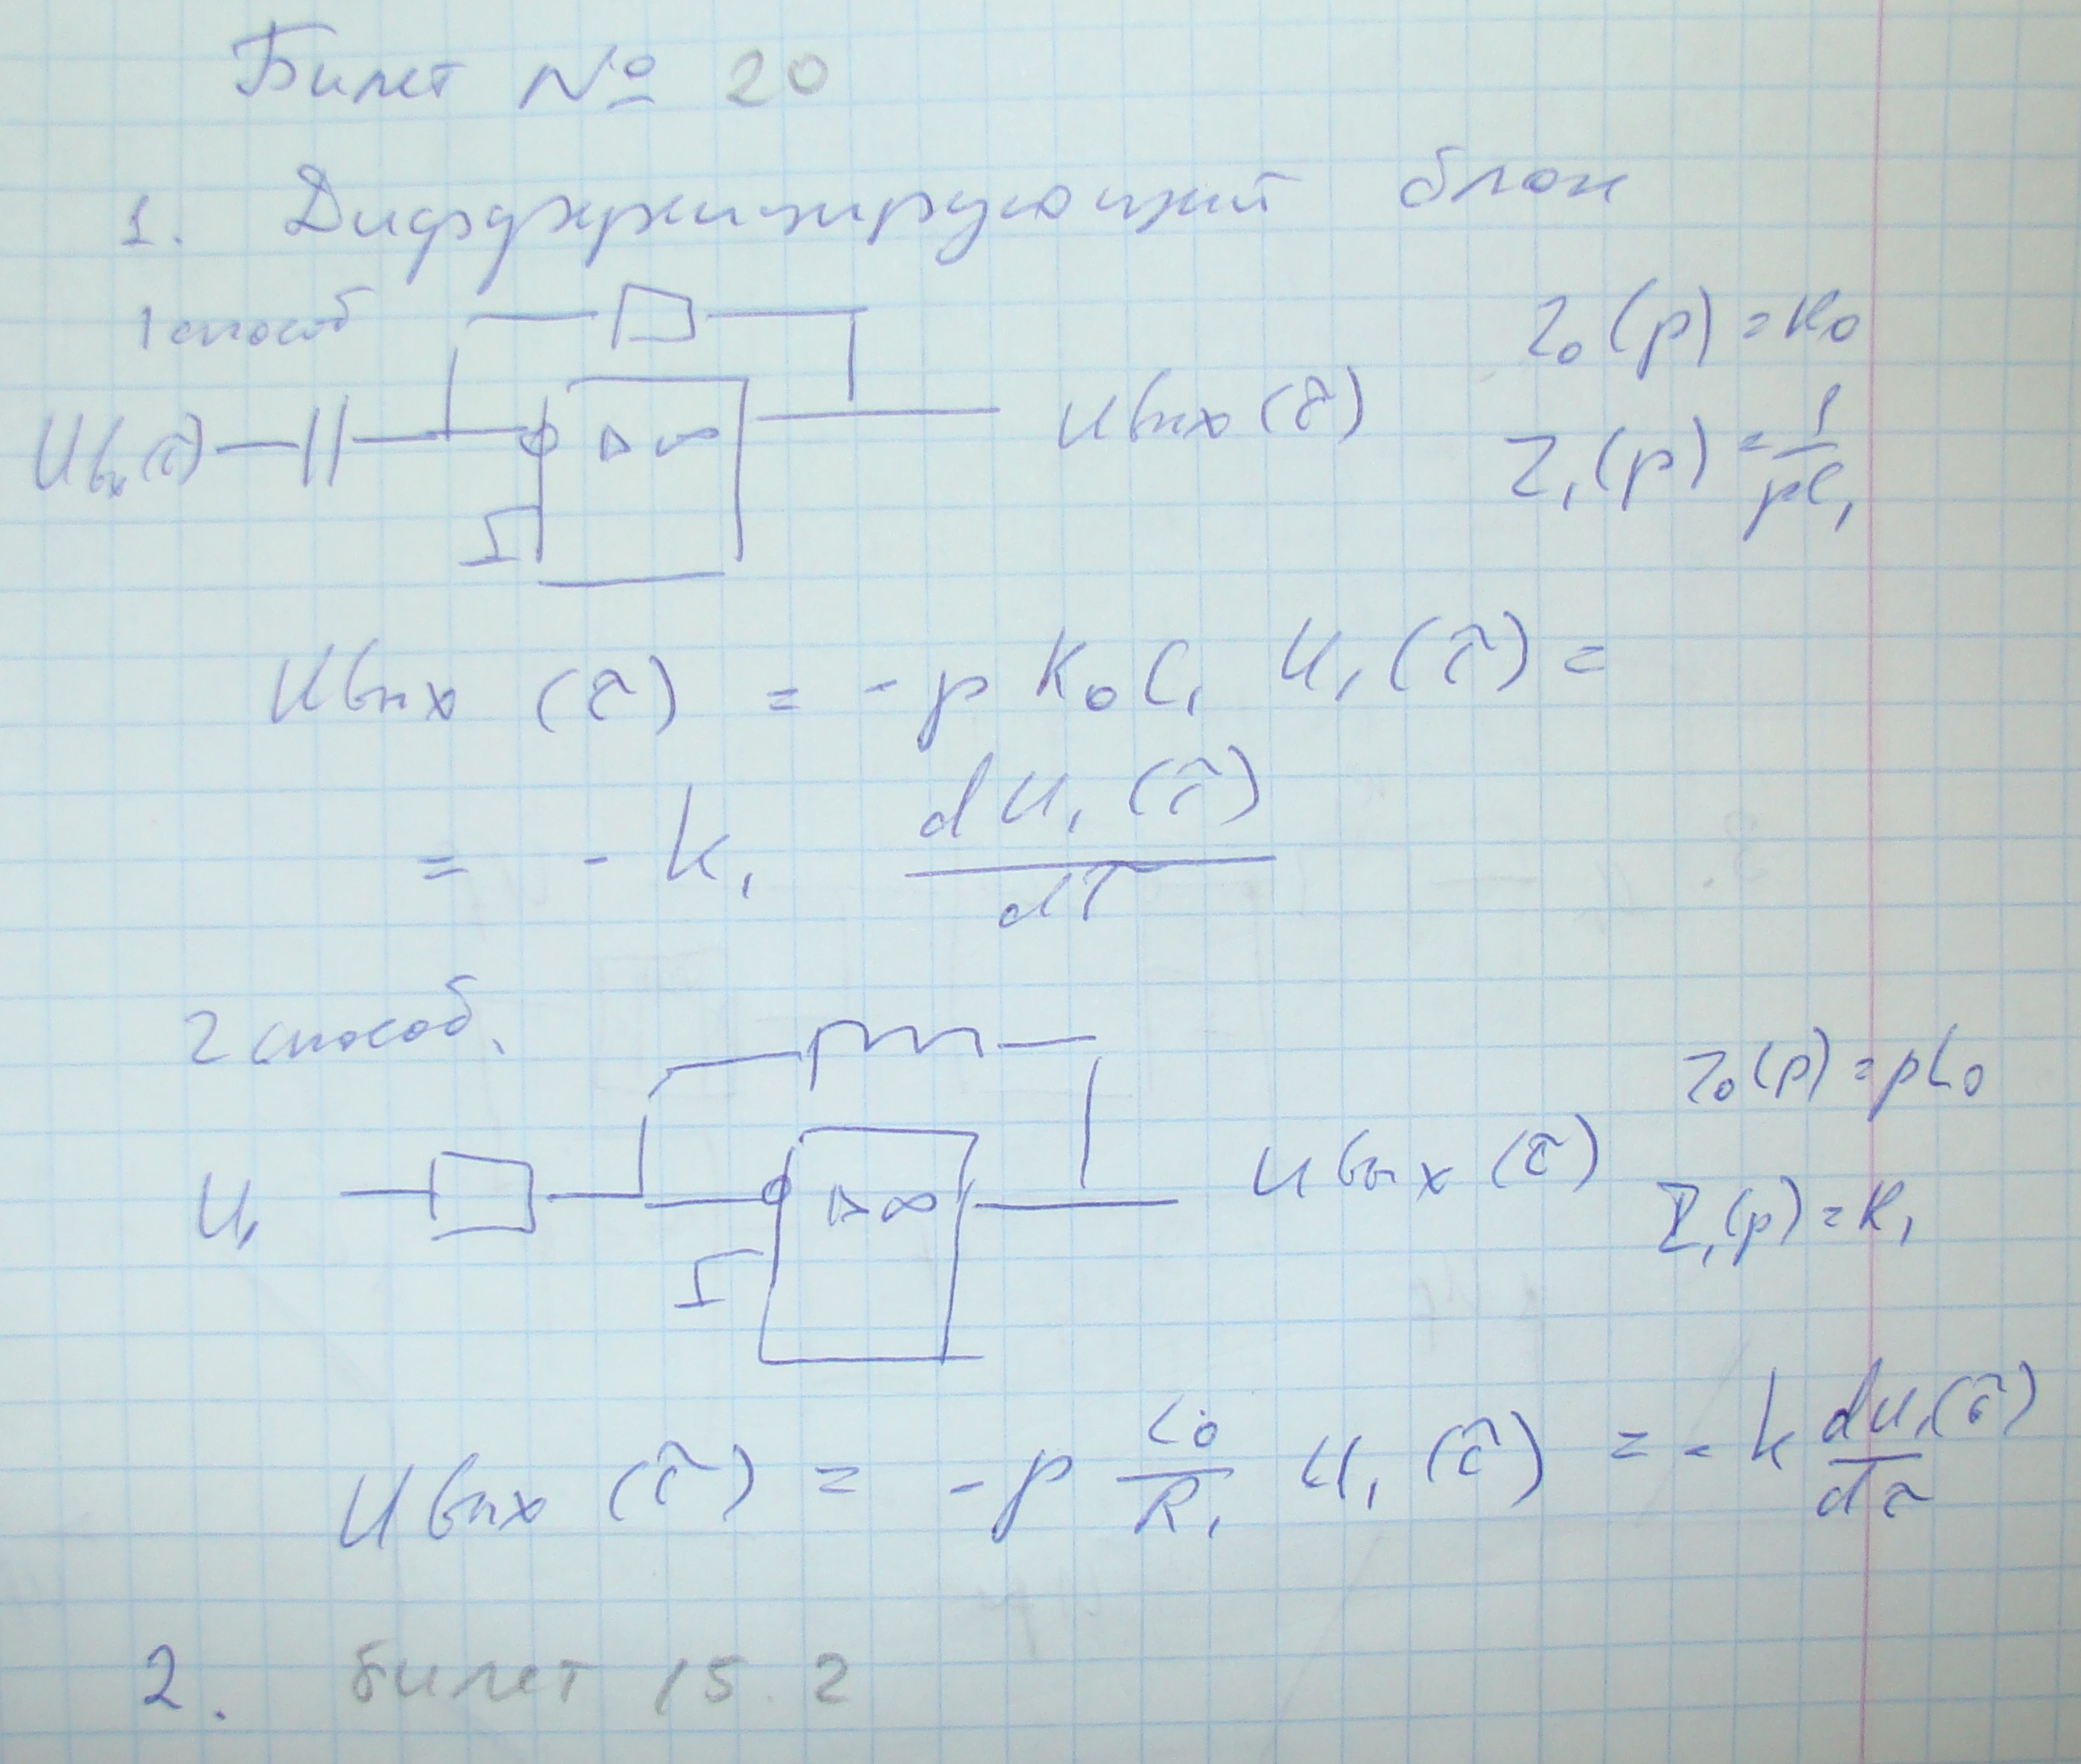 Билет № 20
1. Дифференцирующий блок
1 способ
Z₀(p) = R₀
Uвх(τ) ▷∞ Uвых(τ)
Z₁(p) = 1/pC₁
Uвых (τ) = -p R₀ C₁ U₁(τ) =
= - k₁ dU₁(τ)/dτ
2 способ.
Z₀(p) = pL₀
U₁ ▷∞ Uвых(τ)
Z₁(p) = R₁
Uвых (τ) = -p L₀/R₁ U₁(τ) = - k dU₁(τ)/dτ
2. билет 15.2